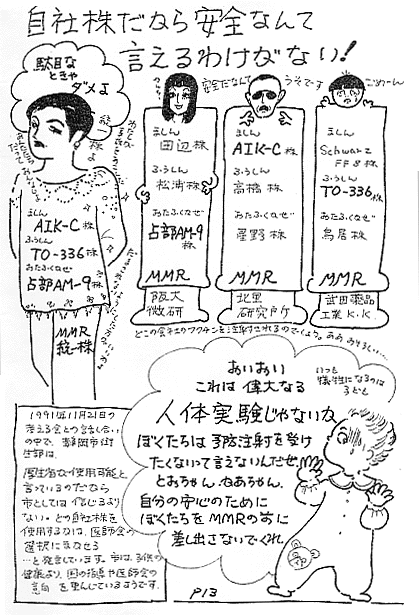 自社株だなら安全なんて
言えるわけがない!
駄目な
ときゃ
ダメよ
安全だなんて
うそです
ごめーん
ましん
田辺株
ふうしん
松浦株
おたふくかぜ
占部AM-9株
MMR
阪大
微研
ましん
AIK-C株
ふうしん
高橋株
おたふくかぜ
星野株
MMR
北里
研究所
ましん
Schwarz
FF8株
ふうしん
TO-336株
おたふくかぜ
鳥居株
MMR
武田薬品
工業K.K
ましん
AIK-C株
ふうしん
TO-336株
おたふくかぜ
占部AM-9株
MMR
統一株
どこの会社のワクチンを注射されるのでしょう。ああ おそろしい…
おいおい
これは 偉大なる
人体実験じゃないか
ぼくたちは 予防注射を受け
たくないって言えないんだぜ
とおちゃん、かあちゃん、
自分の安心のために
ぼくたちを MMRの前に
差し出さないでくれ
いつも
犠牲になるのは
子ども
1991年11月21日の
考える会との話し合い
の中で、静岡市衛
生部は、
厚生省が使用可能と
言っているのだから
市としては 信じるより
ない。どの自社株を
使用するかは、医師会の
選択にまかせる
…と発言しています。市は、子供の
健康より、国の指導や医師会の
意向 を重んじているようです。
P13